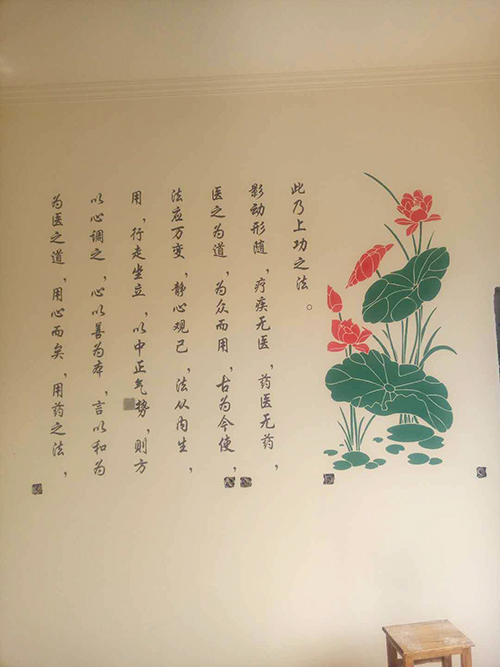 为医之道，用心而矣，用药之法，
以心调之，心以善为本，言以和为
用，行走坐立，以中正气势，则方
法应万变，静心观己，法从内生，
医之为道，为众而用，古为今使，
影动形随，疗疾无医，药医无药，
此乃上功之法。